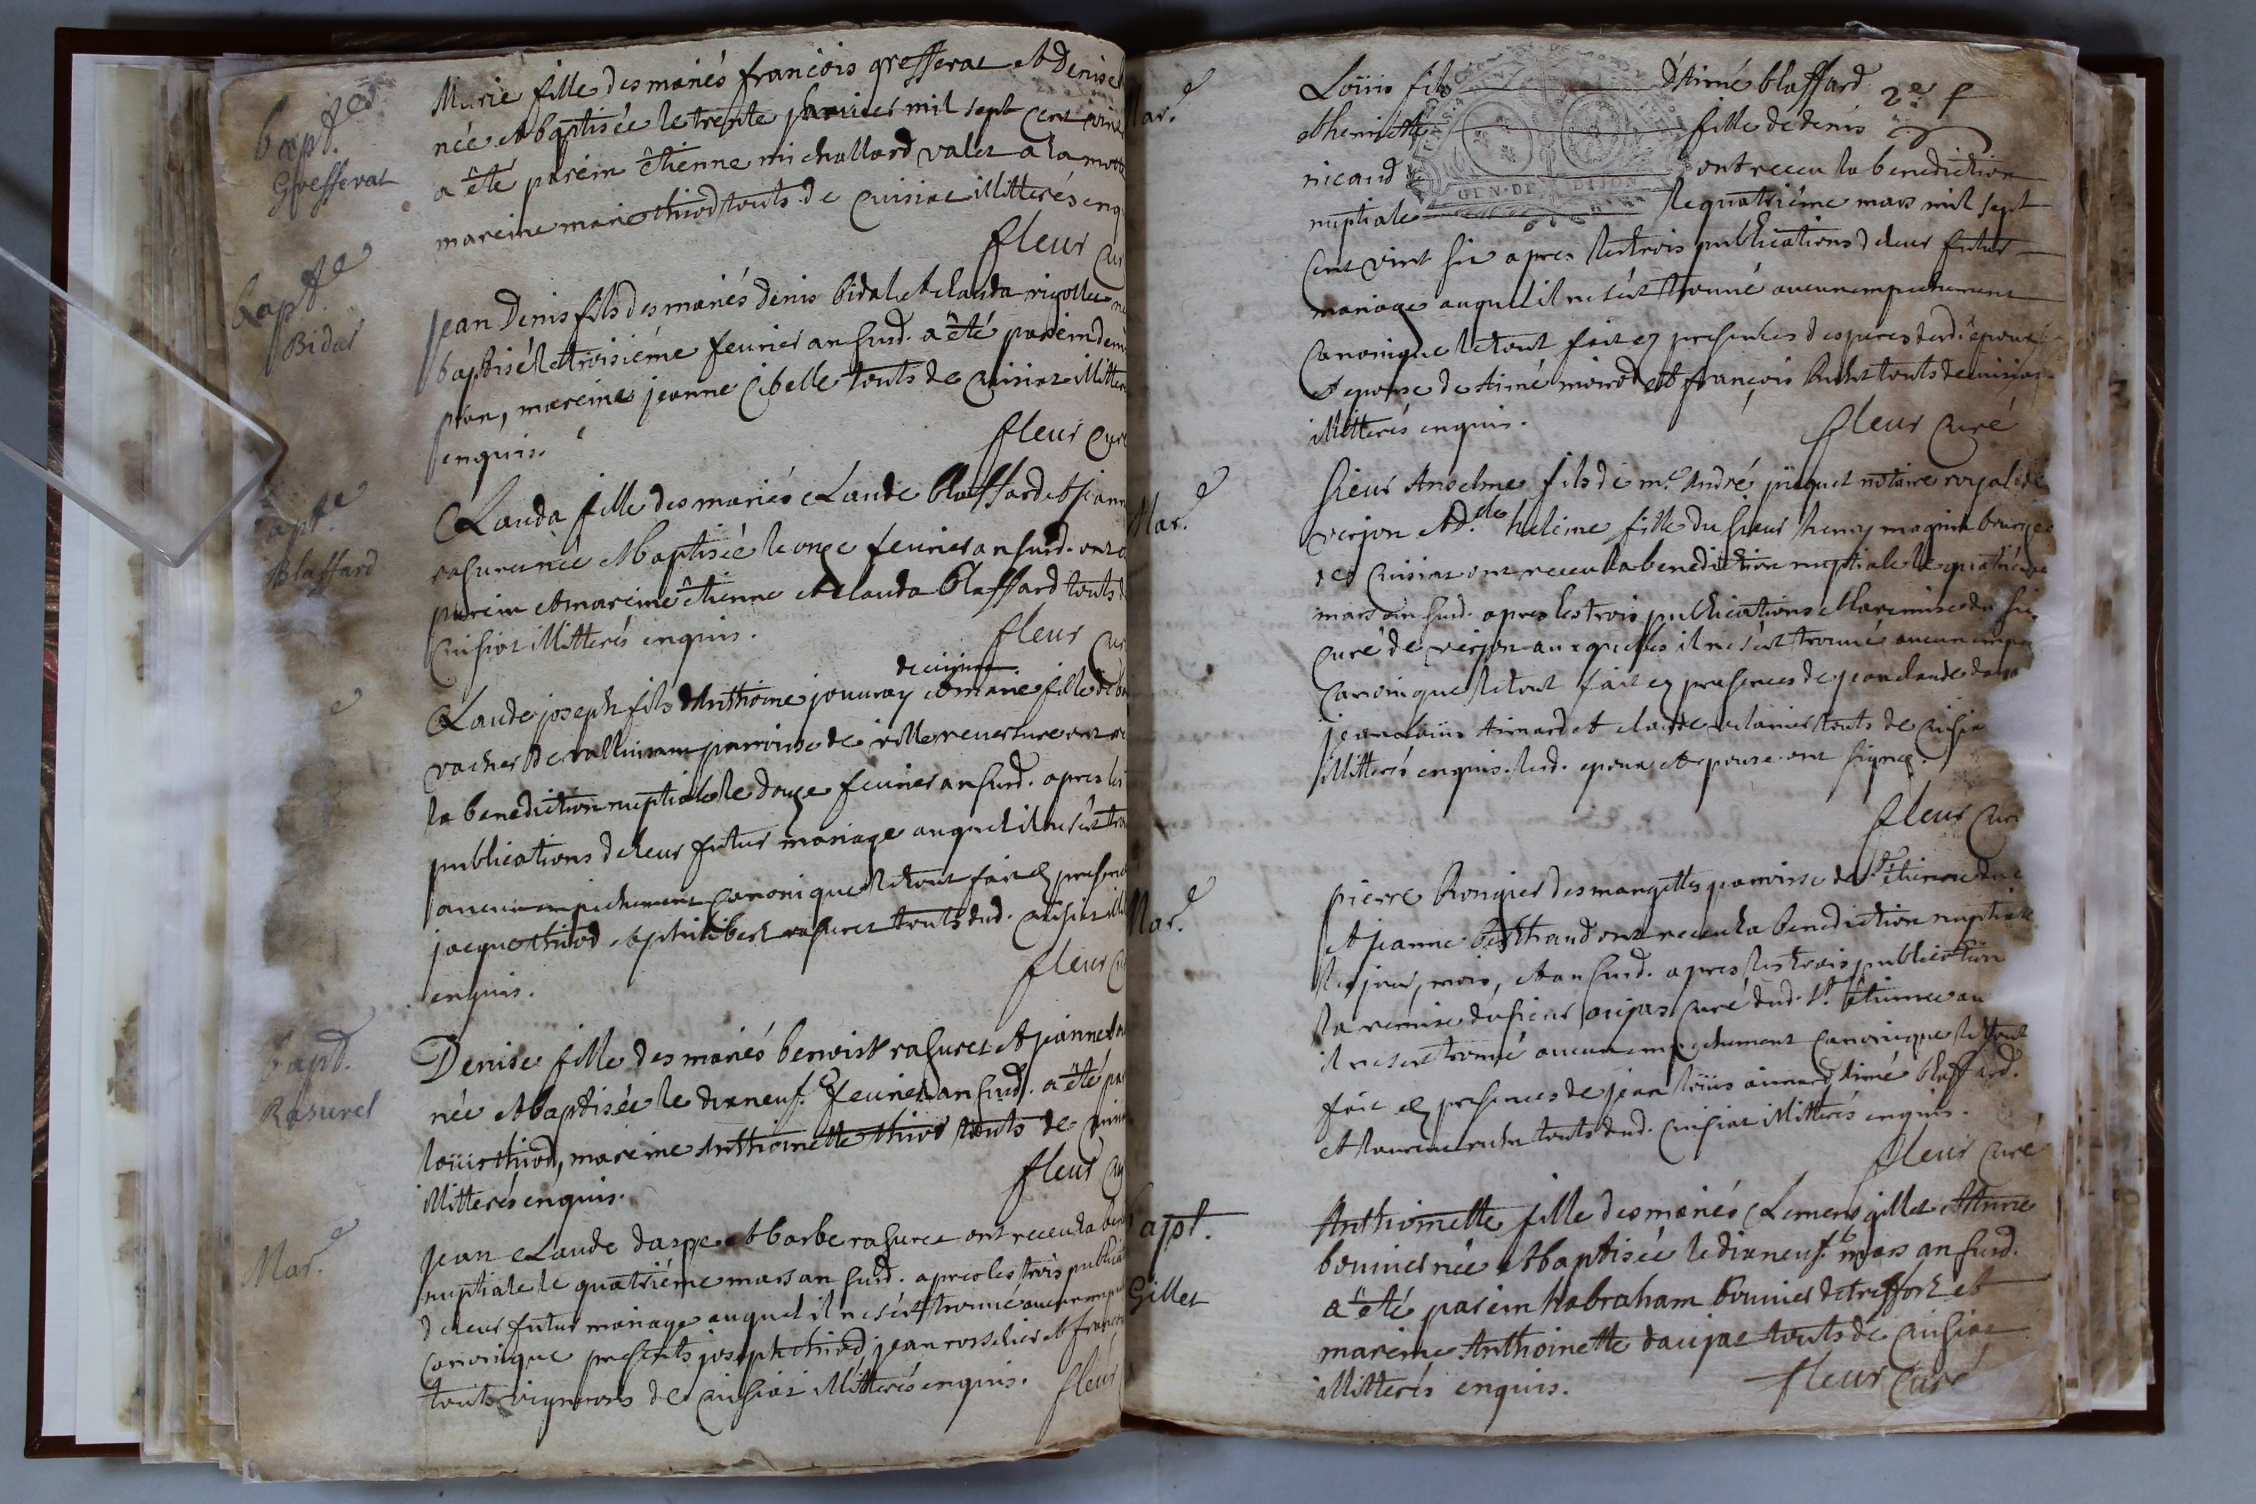 bapt.e
Grefferat
Marie fille des mariés françois grefferat et Denise
née et baptisée le trente janvier mil sept cent vint
a êté parein êtienne michallard valet a la motte
mareine marie thiod touts de cuisiat illitterés enq
fleur cur
bapt.e
Bidal
jean Denis fils des mariés denis bidal et clauda rigollet né
baptisé le troisiéme feurier an susd. a êté parein deni
pion, mareine jeanne Cibelle touts de cuisiat illitter
enquis.
fleur curé
bapt.e
Blaffard
Clauda fille des mariés Claude blaffard et jeann
rasurel née et baptisée le onze feurier an susd. ont
parein et mareine êtienne et clauda blaffard touts d
Cuisiat illitterés enquis.
fleur cur
de cuisiat
Claude joseph fils d'Anthoine jouuray et marie fille de
vacher de paroisse de villereuersure ont
la benediction nuptiale le douze feurier an susd. apres les
publications de leur futur mariage auquel il ne s'ést trou
aucun empechement canonique le tout fait en presence
jacque thiod et philibert rasurel touts dud. cuisiat ill
enquis.
fleur cu
bapt.
Rasurel
Denise fille des mariés benoist rasurel et jeanne
née et baptisée le dixneuf.e feurier an susd. a êté par
loüis thiod, mareine Anthoinette thiod touts de cuisi
illitterés enquis.
fleur cu
Mar.e
jean Claude daspe et barbe rasurel ont receu la ben
nuptiale le quatriéme mars an susd. apres les trois publica
de leur futur mariage auquel il ne s'ést trouué aucun empe
canonique presents joseph thiod, jean rosselier et francois
touts vignerons de Cuisiat illitterés enquis. fleur
Mar.e
Loüis fils d'Aimé blaffard 2.e f
et henriette fille de denis
nicaud ont receu la benediction
GEN. DE DIJON
nuptiale le quatriéme mars mil sept
cent vint six apres les trois publications de leur futur
mariage auquel il ne s'ést trouué aucun empechement
canonique le tout fait en presences des peres desd. époux
et epouse de Aimé moirod et françois Ruhet touts de cuisiat
illitterés enquis.
fleur curé
Mar.e
sieur Anselme fils de m.e André piquet notaire royal de
verjon et D.elle heleine fille du sieur henry magnin bourgeo
de Cuisiat ont receu la bénédiction nuptiale le quatriéme
mars an susd. apres les trois publications et la remise du sie
curé de verjon auxquelles il ne s'ést trouué aucun empe
canonique le tout fait en presences de jean claude daspe
jean loüis Aimard et claude touts de cuisia
illitterés enquis. lesd. epoux et epouse ont signé.
fleur cur
Mar.e
pierre Rongier des mangettes paroisse de S.t êtienne du
et jeanne bertrand ont receu la benediction nuptiale
les jour, mois, et an susd. apres les trois publication
la remise du sieur curé dud. S.t êtienne au
il ne s'est trouué aucun empechement canonique le tout
fait en presences de jean loüis aimard, Aimé blaffard.
et laurent ruhet touts dud. cuisiat illitterés enquis.
fleur curé
bapt.
Gillet
Anthoinette fille des mariés Clement gillet et Anne
bouuier née et baptisée le dixneuf.e mars an susd.
a êté parein habraham bouuier de treffort et
mareine Anthoinette daujat touts de Cuisiat
illitterés enquis.
fleur curé